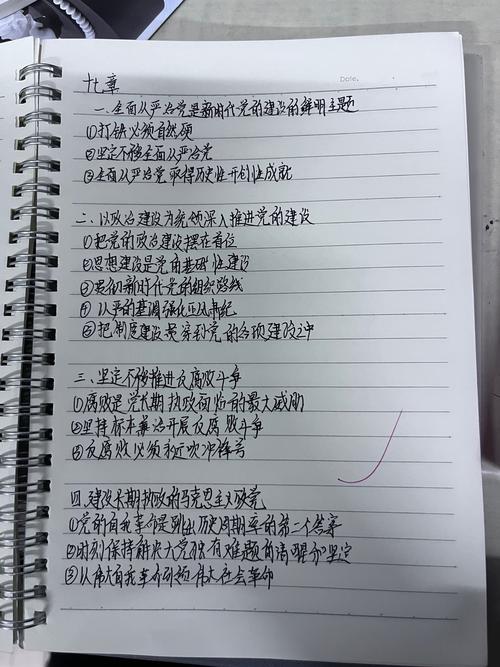 十七章
Date.
一、全面从严治党是新时代党的建设的鲜明主题
①打铁必须自然硬
②坚定不移全面从严治党
③全面从严治党取得历史性开创性成就
二、以政治建设为统领深入推进党的建设
①把党的政治建设摆在首位
②思想建设是党的基础性建设
③贯彻新时代党的组织路线
④以严的基调强化正风肃纪
⑤把制度建设贯穿到党的各项建设之中
三、坚定不移推进反腐败斗争
①腐败是党长期执政面临的最大威胁
②坚持标本兼治开展反腐败斗争
③反腐败必须永远吹冲锋号
四、建设长期执政的马克思主义政党
①党的自我革命是跳出历史周期率的第二个答案
②时刻保持解决大党独有难题的清醒和坚定
③以伟大自我革命引领伟大社会革命